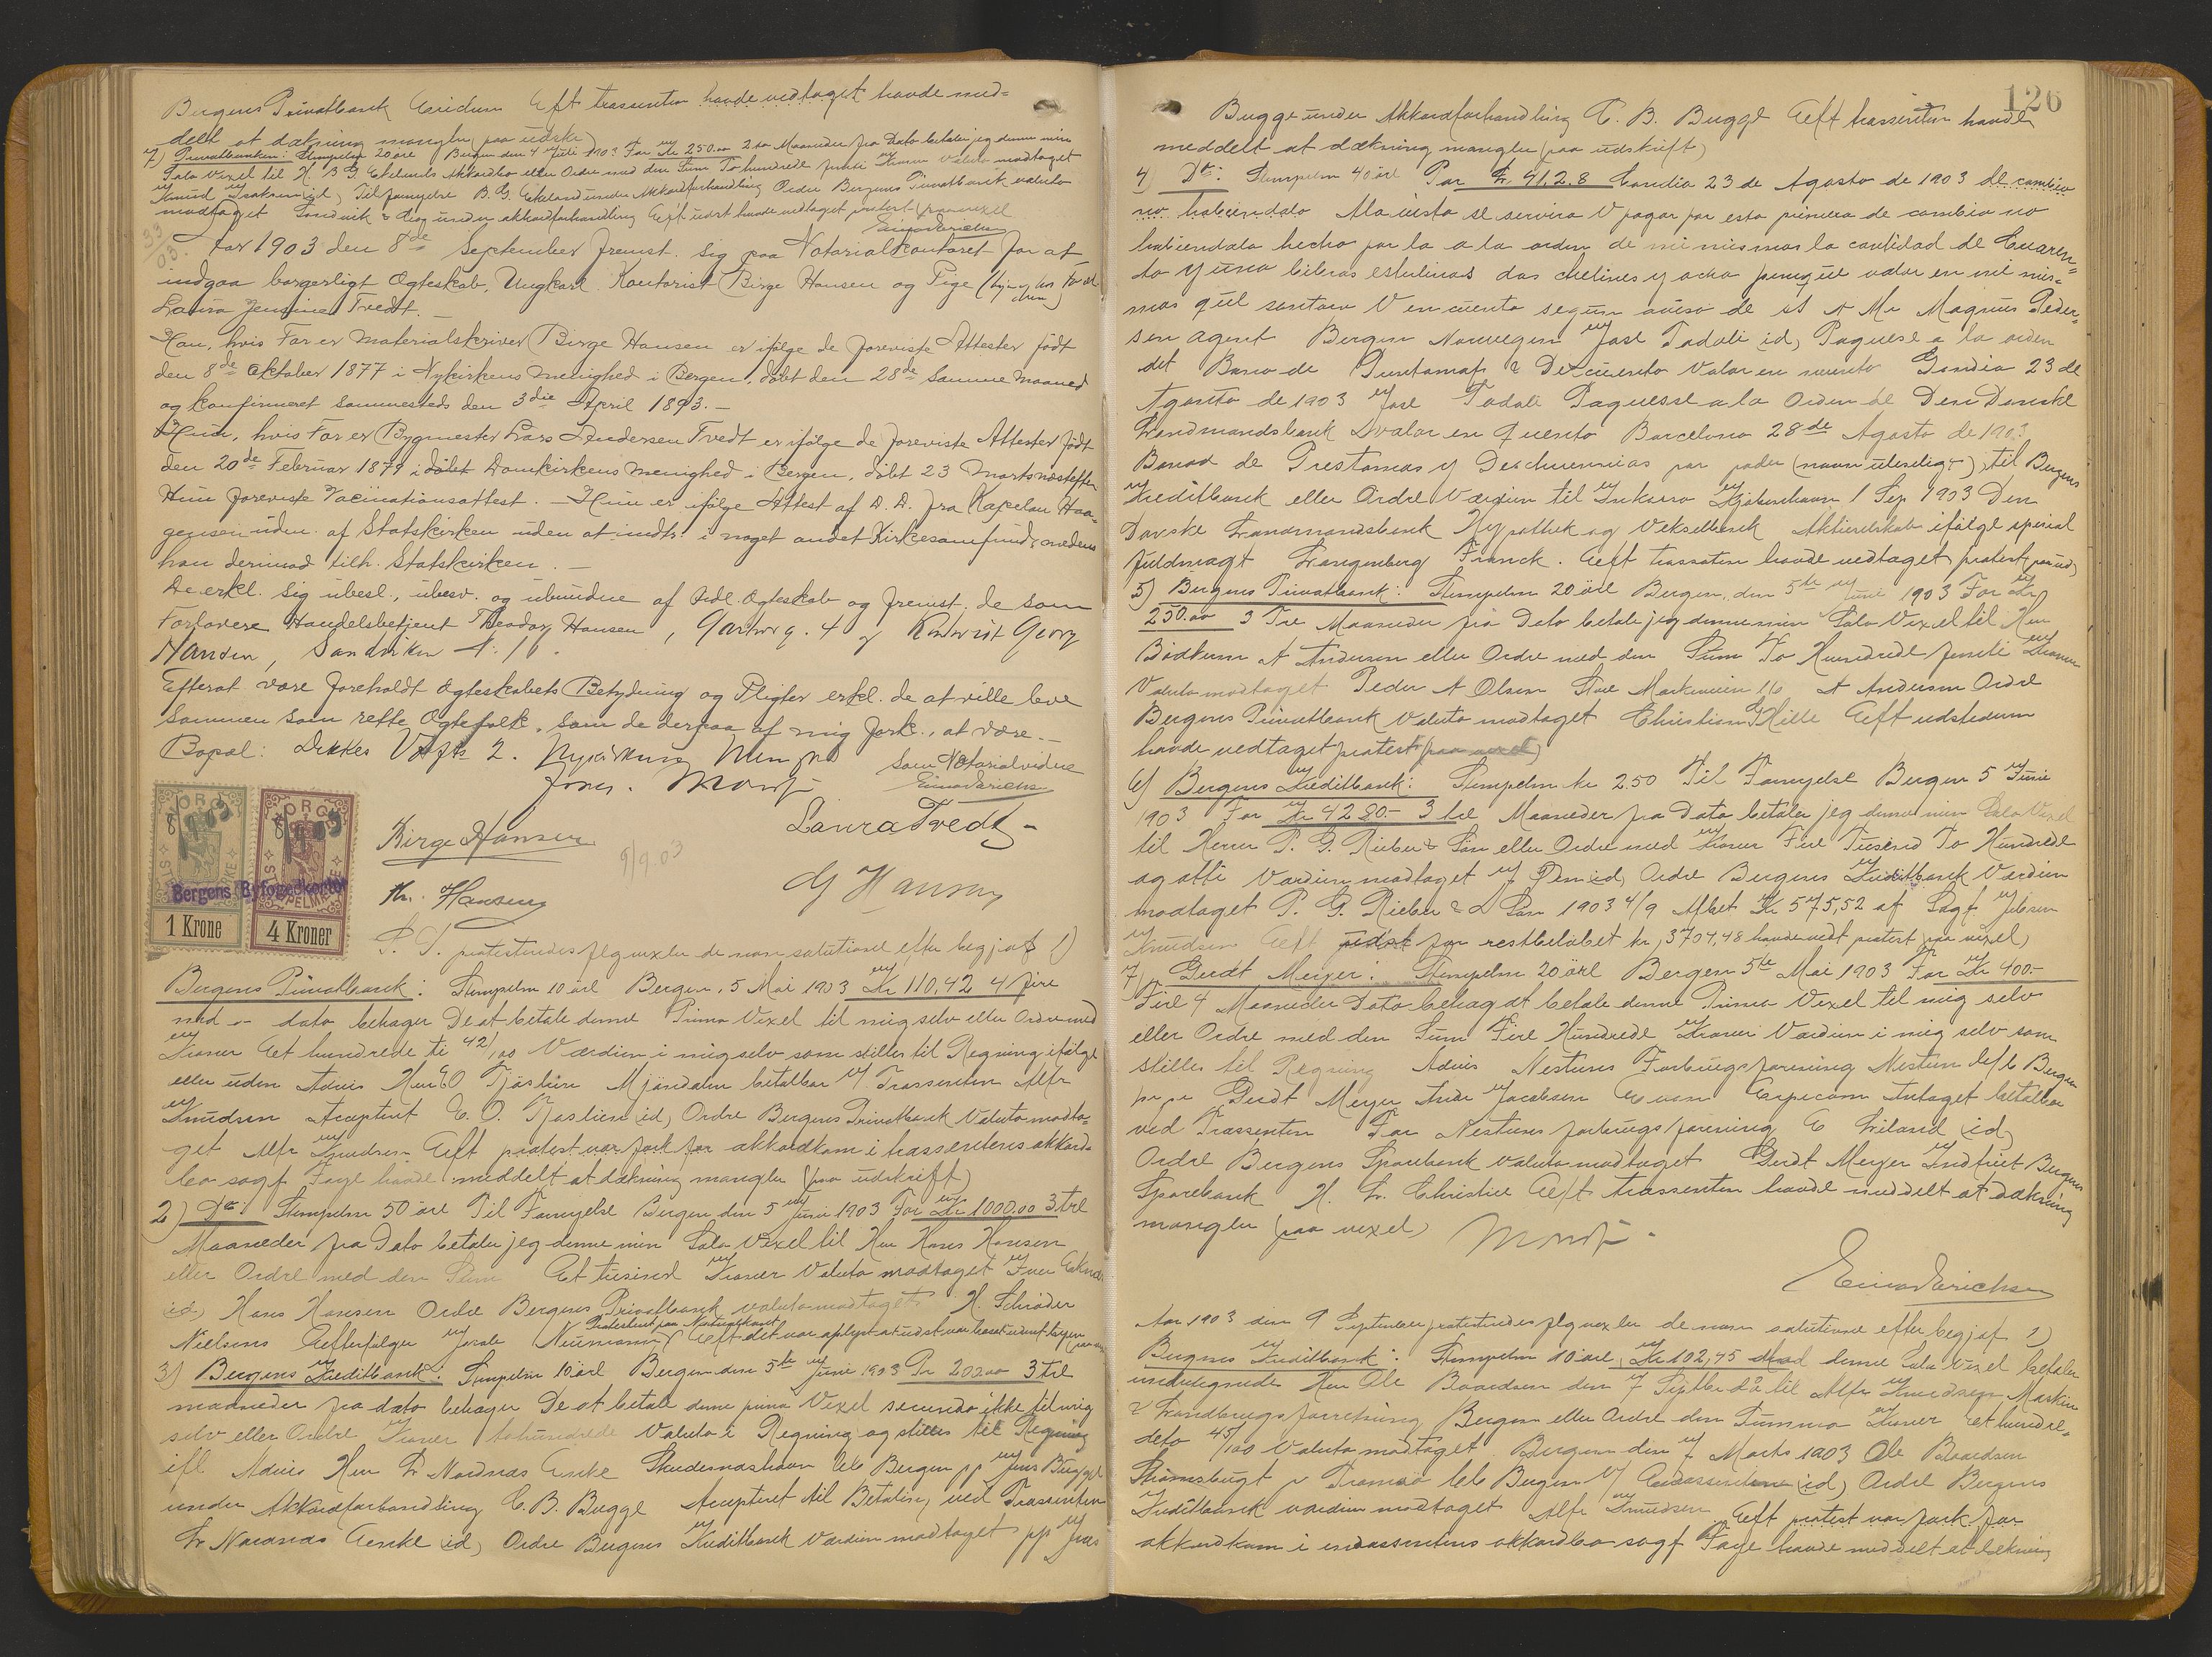 Bergens Privatbank Eft trassenten havde vedtaget havde med=
delt at dækning mangler (paa udskr)
7) Privatbanken: Stempelm 20 øre Bergen den 4 Juli 1903 For Kr 250.00 2 to Maaneder fra Dato betaler jeg denne min
Sola Vexel til H. B G. Ekelands Akkordbo eller Ordre med den Sum To hundrede femti Kroner Valuta modtaget
Knud Isaksen (id) Til fornyelse B. G. Ekeland under Akkordforhandling Ordre Bergens Privatbank valuta
modtaget under akkordforhandling Eft udst havde vedtaget protest (paa vexel
Einar Erichsen
33/03.
Aar 1903 den 8de September fremst. sig paa Notarialkontoret for at
indgaa borgerligt Ægteskab, Ungkarl Kontorist Birge Hansen og Pige
Laura Jensine Tvedt. —
Han, hvis Far er Materialskriver Birge Hansen er ifølge de foreviste Attester født
den 8de Oktober 1877 i Nykirkens Menighed i Bergen, døbt den 28de samme Maaned
og konfirmeret sammesteds den 3die April 1893. —
Hun, hvis Far er Bygmester Lars Andersen Tvedt er ifølge de foreviste Attester født
den 20de Februar 1879 i døbt Domkirkens Menighed i Bergen, døbt 23 Marts næstefter
Hun foreviste Vaccinationsattest. — Hun er ifølge Attest af D. D. fra Kapelan Haa=
gensen uden. af Statskirken uden at indtr. i noget andet Kirkesamfund, medens
han derimod tilh. Statskirken. —
De erkl. sig ubesl., ubesv. og ubundne af tidl. Ægteskab og fremst. de som
Forlovere Handelsbetjent Theodor Hansen, Gartnerg. 4 og Kontorist Georg
Hansen, Sandviken N: 16.
Efterat være foreholdt Ægteskabets Betydning og Pligter erkl. de at ville leve
sammen som rette Ægtefolk, som de derpaa af mig fork., at være. —
Bopæl: Dikkes 2. Nykirkens
Som Notarialvidne
Einar Erichsen
NORGE
STEMPELMÆRKE
8/9 1903
Bergens Byfogedkontor
1 Krone
4 Kroner
Birge Hansen
Laura Tvedt —
9/9.03
Th. Hansen
G Hansen
S. D. protesteredes flg vexler de non solutione efter begj af 1)
Bergens Privatbank: Stempelm 10 øre Bergen, 5 Mai 1903 Kr 110,42 4 fire
dato behager De at betale denne Prima Vexel til mig selv eller Ordre med
Kroner Et hundrede ti 42/100 Værdien i mig selv som stilles til Regning ifølge
eller uden Advis Herr E O Mjøndalen betalbar Trassenten Alfr
Knudsen Accepteret E. O. (id) Ordre Bergens Privatbank Valuta modta=
get Alfr Knudsen Eft protest var fork for akkordkom i trassentens akkord=
bo sagf Faye havde meddelt at dækning mangler (paa udskrift)
2) Do: Stempelm 50 øre Til Fornyelse Bergen den 5 Juni 1903 For Kr 1000,00 3 tre
Maaneder fra Dato betaler jeg denne min Sola Vexel til Herr Hans Hansen
eller Ordre med den Sum Et tusind Kroner Valuta modtaget
(id) Hans Hansen Ordre Bergens Privatbank valuta modtaget H. Schrøder
Protesteret paa Notarialkont
Nielsens Efterfølger Neumann Eft det var oplyst at udst var
3) Bergens Kreditbank: Stempelm 10 øre Bergen den 5te Juni 1903 Pr 200.00 3 tre
maaneder fra dato behager De at betale denne prima Vexel secunda ikke til mig
selv eller Ordre Kroner tohundrede Valuta i Regning og stilles til Regning
ifl Advis Herr L Nordnæs Enke Skudesnæshavn bto Bergen pp Jens Bugge
under Akkordforhandling C. B. Bugge Accepteret til Betaling ved Trassenten
L Nordnæs Enke (id) Ordre Bergens Kreditbank Værdien modtaget pp Jens
126
Bugge under Akkordforhandling C. B. Bugge Eft trassenten havde
meddelt at dækning mangler (paa udskrift)
4) Do: Stempelm 40 øre Por £ 41.2.8 Candia 23 de Agosto de 1903 de cambio
no habiendolo A la vista se servira V pagar por esta primera de cambio no
habiendola hecho por la a la orden de mi mismos la cantidad de Cuaren=
ta y una libras esterlinas dos chelines y ocho penique valor en mi mis=
mos que sentara V en cuenta segun aviso de A Mr Magnus Peder=
sen agent Bergen Norwegen Jose Tadali (id) Paguese a la orden
del Banco de Prestamos & Descuento Valor en cuenta Gandia 23 de
Agosto de 1903 Jose Tadali Paguesse a la Orden de Den Danske
Landmandsbank valor en Quento Barcelona 28de Agosto de 1903
Banco de Prestamos y Descuentos por poder (navn uleseligt), til Bergens
Kreditbank eller Ordre Værdien til Inkasso Kjøbenhavn 1 Sep 1903 Den
Danske Landmandsbank Hypothek og Vekselbank Aktieselskab ifølge special
fuldmagt Langenberg Franck. Eft trassaten havde vedtaget protest (paa ud)
5) Bergens Privatbank: Stempelm 20 øre Bergen, den 5te Juni 1903 For Kr
250.00 3 Tre Maaneder fra Dato betale jeg denne min Sola Vexel til Herr
Bødkerm A Andersen eller Ordre med den Sum To Hundrede femti Kroner
Valuta modtaget Peder A Olsen Store Markevei 16 A Andersen Ordre
Bergens Privatbank Valuta modtaget Christian Hille Eft udstederen
havde vedtaget protest (paa vexel)
6) Bergens Kreditbank: Stempelm kr 2.50 Til Fornyelse Bergen 5 Juni
1903 For Kr 4280.- 3 tre Maaneder fra Dato betaler jeg denne min Sola Vexel
til Herrer P. G. Rieber & Søn eller Ordre med Kroner Fire Tusend To Hundrede
og otti Værdien modtaget (id) Ordre Bergens Kreditbank Værdien
modtaget P. G. Rieber & Søn 1903 4/9 Afbet Kr 575,52 af Sagf. Jebsen
Knudsen Eft udst for restbeløbet kr, 3704,48 havde vedt protest (paa vexel)
7) Gerdt Meyer: Stempelm 20 øre Bergen 5te Mai 1903 For Kr 400.-
Fire 4 Maaneder Dato behag at betale denne Prima Vexel til mig selv
eller Ordre med den Sum Fire Hundrede Kroner Værdien i mig selv som
stilles til Regning Advis Nestuns Forbrugsforening Nestun Bergen
Gerdt Meyer Jacobsen Antaget betalbar
ved Trassenten For Nestuns forbrugsforening (id)
Ordre Bergens Sparebank valuta modtaget Gerdt Meyer Indfriet Bergens
Sparebank H. L. Christie Eft trassenten havde meddelt at dækning
mangler (paa vexel)
Einar Erichsen
Aar 1903 den 9 September protesteredes flg vexler de non solutione efter begj af 1)
Bergens Kreditbank: Stempelm 10 øre, Kr 102,45 denne Sola Vexel betaler
undertegnede Herr Ole Baardsen den 7 Septbr d å til Alfr Knudsen Maskin
& Landbrugsforretning Bergen eller Ordre den Summa Kroner et hundrede
deto 45/100 Valuta modtaget Bergen den 7 Marts 1903 Ole Baardsen
Tromsø bto Bergen (id) Ordre Bergens
Kreditbank værdien modtaget Alfr Knudsen Eft protest var fork for
akkordkom i endossentens akkordbo sagf Faye havde meddelt at dækning